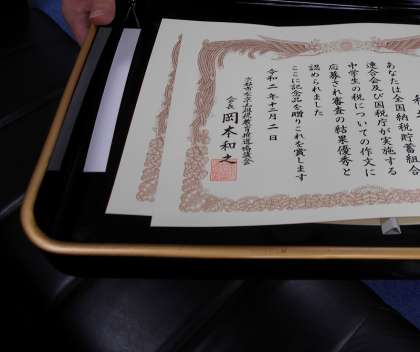 あなたは全国納税貯蓄組合
連合会及び国税庁が実施する
中学生の税についての作文に
応募され審査の結果優秀と
認められました
ここに記念品を贈りこれを賞します
令和二年十二月二日
会長 岡本和之